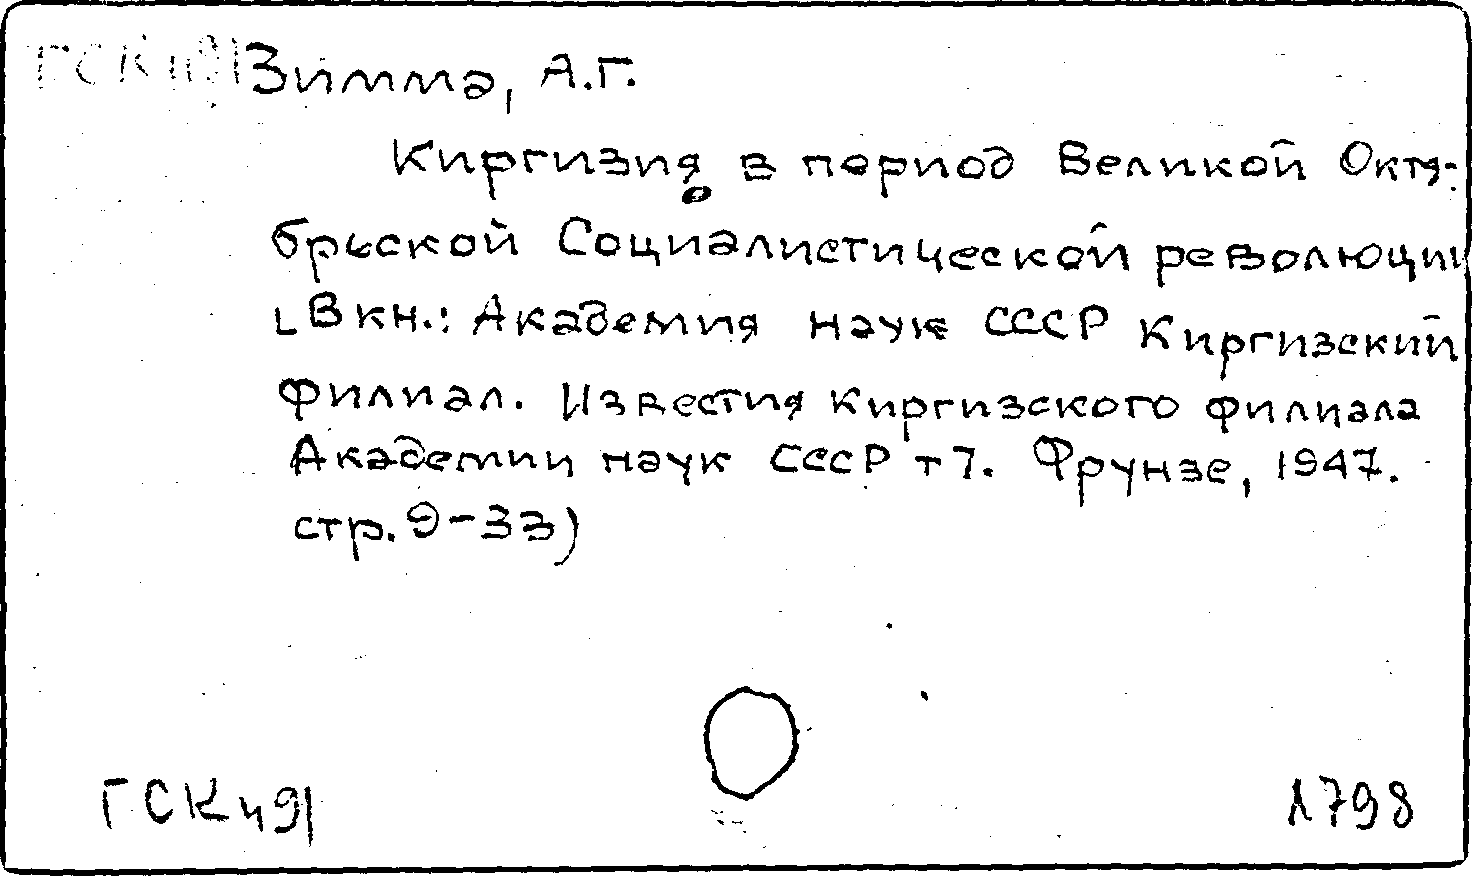 ГСК и91 Зимма, А.Г.
Киргизия в период Великой Октя-
брьской Социалистической революции
[В кн.: Академия наук СССР Киргизский
филиал. Известия Киргизского филиала
Академии наук СССР т 7. Фрунзе, 1947.
стр. 9-33)
ГСК и91
Л798